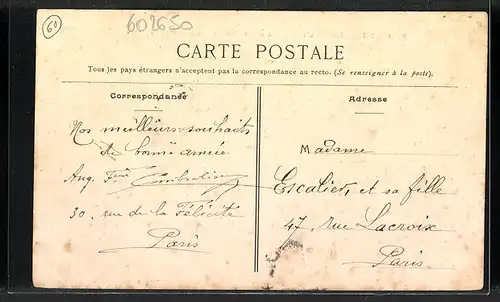 60
602650
CARTE POSTALE
Tous les pays étrangers n'acceptent pas la correspondance au recto. (Se renseigner à la poste).
Correspondance
Adresse
Nos meilleurs souhaits
de bonne année
Aug.
30. rue de la Félicité
Paris
Madame
Escalier, et sa fille
47, rue Lacroix
Paris